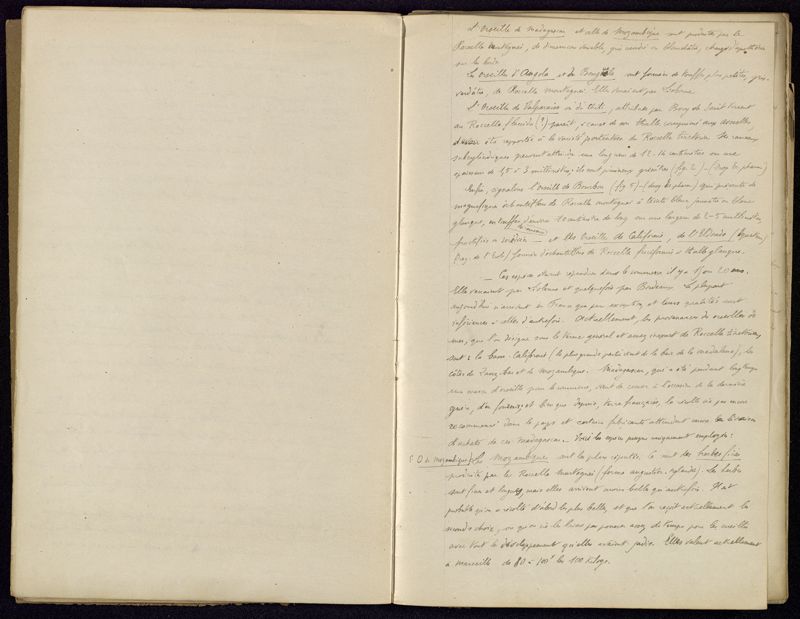 L'orseille de Madagascar et celle de Mozambique sont produites par le
Roccella montagnei, de dimension semblable, gris cendré ou blanchâtre, chargé d'apothécies
sur les bords.
Les orseilles d'Angola et de Benguela sont formées de touffes plus petites, gris
verdâtre, de Roccella montagnei. Elles venaient par Lisbonne.
L'orseille de Valparaiso ou de Chili, attribuée par Bory de Saint Vincent
au Roccella flaccida (?) paraît, à cause de son thalle comprimé aux aisselles,
devoir être rapportée à la variété portentosa du Roccella tinctoria. Les rameaux
subcylindriques peuvent atteindre une longueur de 12-14 centimètres ou une
épaisseur de 1,5 à 3 millimètres; ils sont rameaux grisâtres (fig. 2) - (Drog. Ec. pharm.)
Enfin, signalons l'orseille de Bourbon (fig 5) - (drog. Ec. pharm) qui présente de
magnifiques échantillons de Roccella montagnei à teinte bleue jaunâtre ou blanc
glauque, en touffes d'environ 20 centimètres de long sur une largeur de 2-5 millimètres
fructifiés en sorédies et les orseilles de Californie, de l'Eldorado (Equateur)
(Drog. de l'Ecole) formées d'échantillons de Roccella fuciformis à thalle glauque.
— Ces espèces étaient répandues dans le commerce il y a 15 ou 20 ans.
Elles venaient par Lisbonne et quelquefois par Bordeaux. La plupart
aujourd'hui n'arrivent en France que par exception et leurs qualités sont
inférieures à celles d'autrefois. Actuellement, les provenances des orseilles de
mer, que l'on désigne sous le terme général et assez inexact de Roccella tinctoria,
sont: la Basse-Californie (la plus grande partie vient de la baie de la Madalena), les
côtes de Zanzibar et de Mozambique. Madagascar, qui a été pendant longtemps
une source d'orseille pour le commerce, vient de cesser à l'occasion de la dernière
guerre, d'en fournir; et bien que depuis, terre française, la récolte n'a pas encore
recommencé dans le pays et certains fabricants attendent encore les livraisons
d'achats de ces Madagascar. Voici les espèces presque uniquement employées:
1° O de mozambique) Les Mozambique sont les plus réputées. Ce sont des herbes fines
produites par le Roccella montagnei (forme angustior, cylindr.). Les herbes
sont fines et longues, mais elles arrivent moins belles qu'autrefois. Il est
probable qu'on a récolté d'abord les plus belles, et que l'on reçoit actuellement les
seconds choix, ou qu'on ne les laisse pas pousser assez de temps pour les cueillir
avec tout le développement qu'elles avaient jadis. Elles valent actuellement
à Marseille de 80 à 100f les 100 Kilogs.